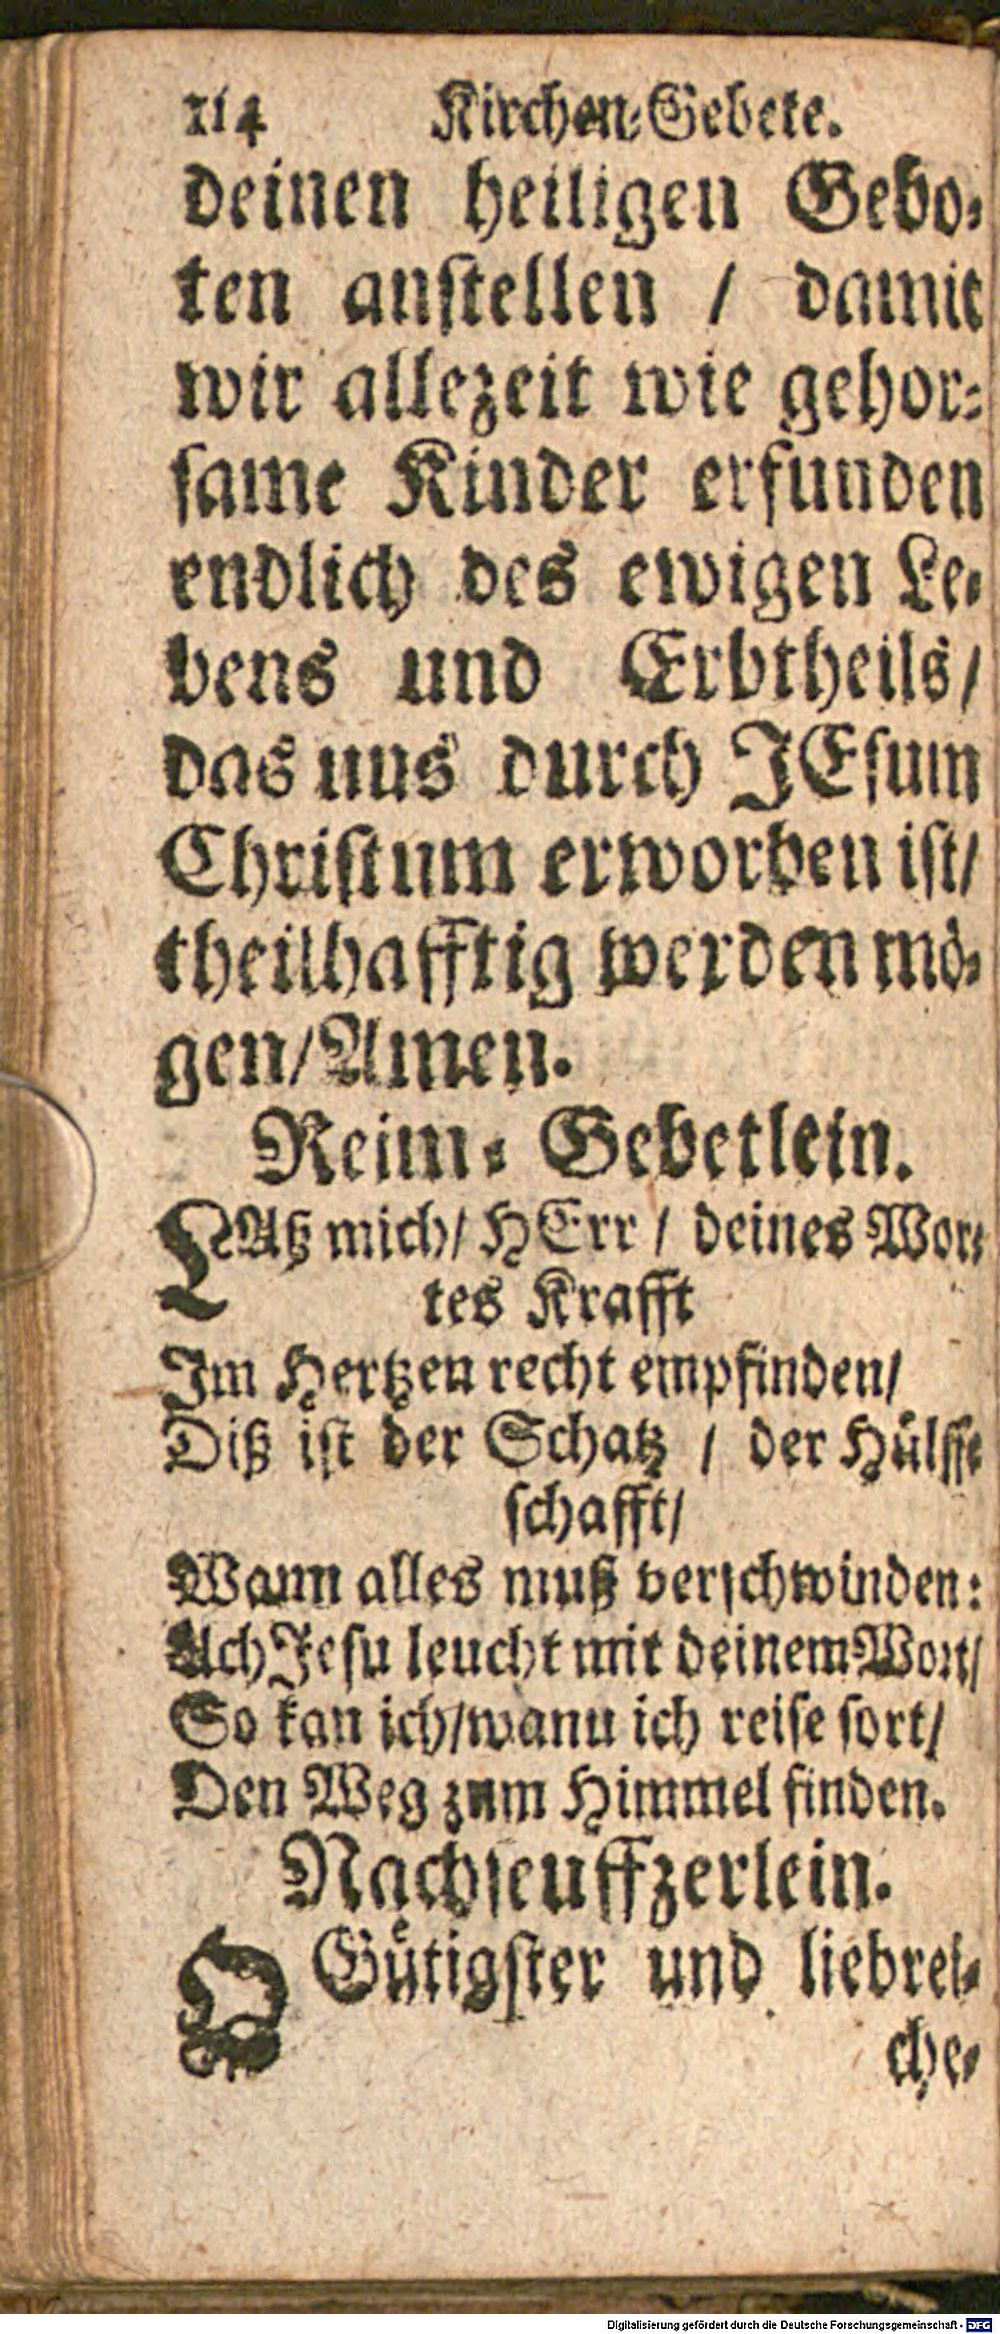 114 Kirchen-Gebete.
deinen heiligen Gebo-
ten anstellen / damit
wir allezeit wie gehor-
same Kinder erfunden
endlich des ewigen Le-
bens und Erbtheils/
das uns durch JEsum
Christum erworben ist/
theilhafftig werden mö-
gen/Amen.
Reim- Gebetlein.
LAß mich/ HErr / deines Wor-
tes Krafft
Im Hertzen recht empfinden/
Diß ist der Schatz / der Hülffe
schafft/
Wann alles muß verschwinden:
Ach Jesu leucht mit deinem Wort/
So kan ich/wann ich reise fort/
Den Weg zum Himmel finden.
Nachseuffzerlein.
O Gütigster und liebrei-
che-
Digitalisierung gefördert durch die Deutsche Forschungsgemeinschaft - DFG